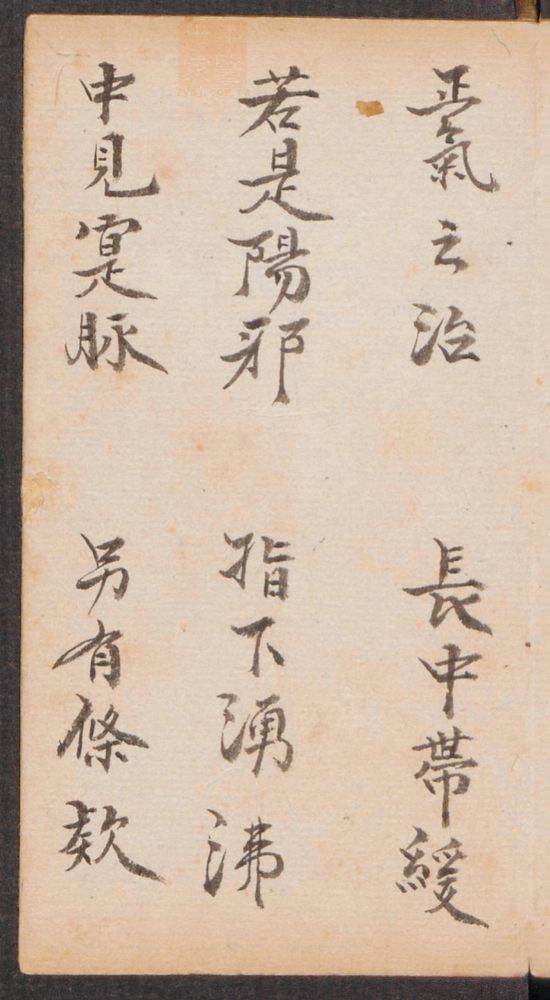 正氣之治 長中帶緩
若是陽邪 指下湧沸
中見寔脉 另有條欵